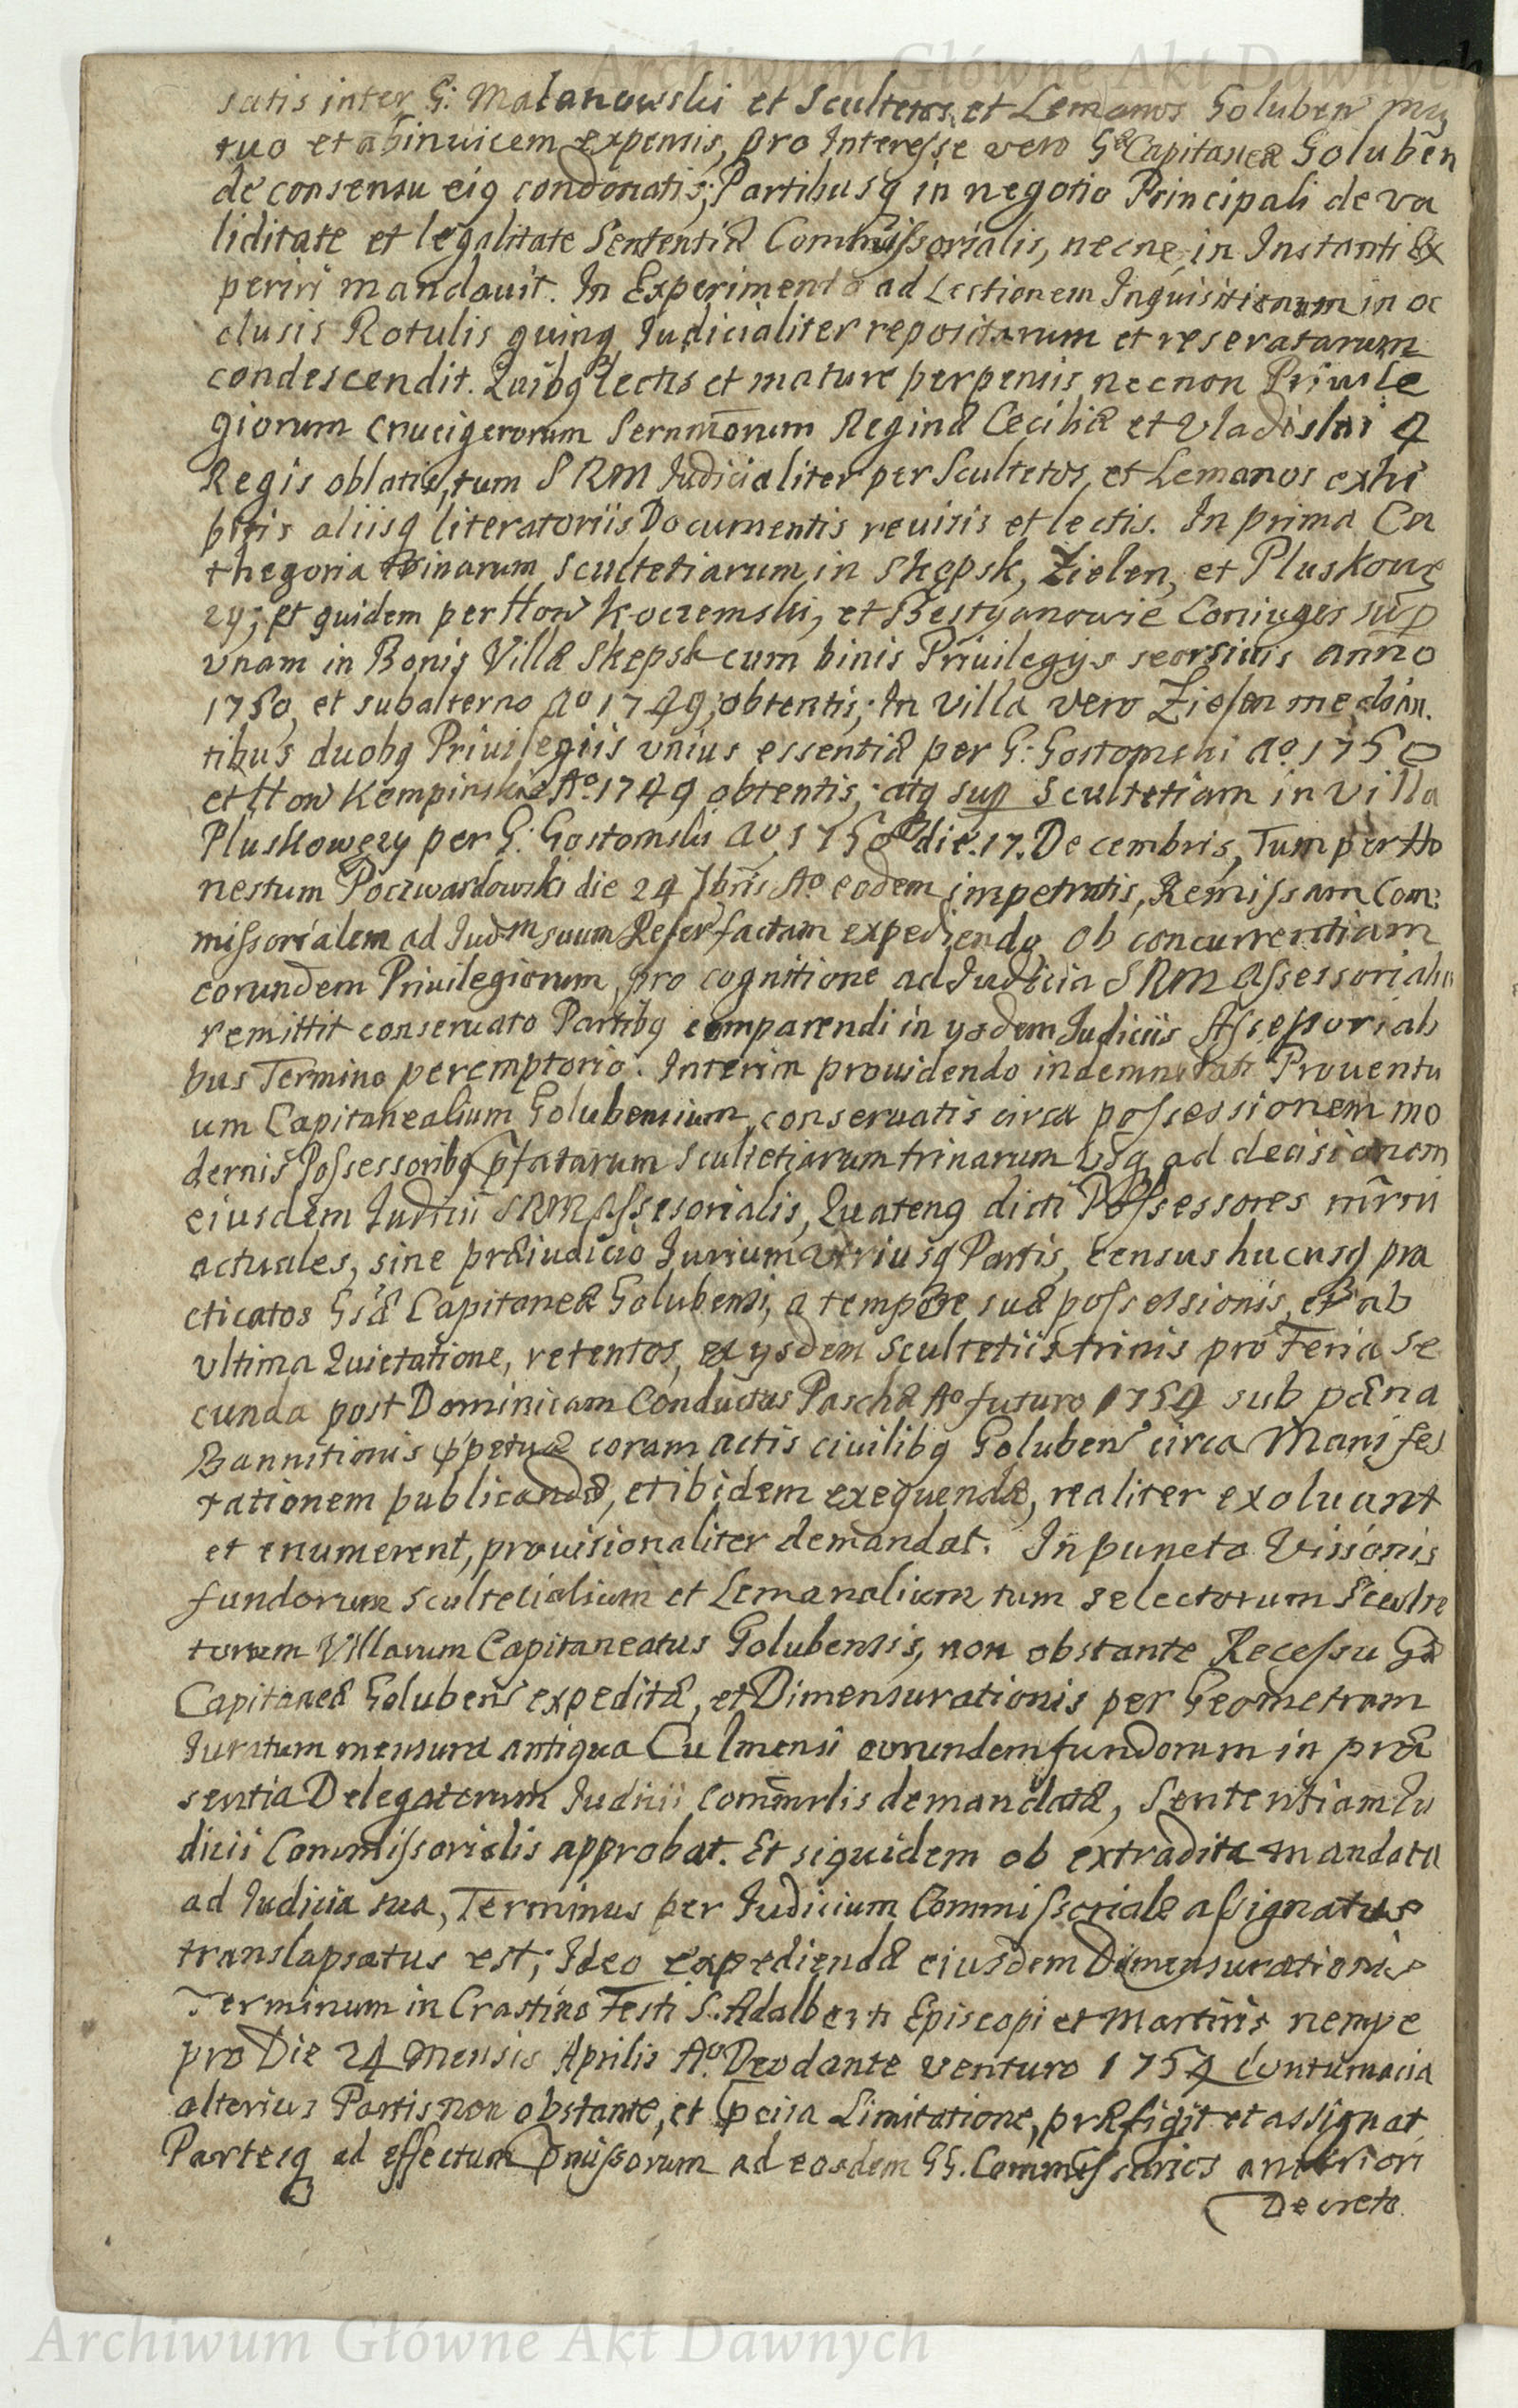 Archiwum Główne Akt Dawnych
satis inter G: Malanowski et Scultetos, et Lemanos Goluben mu
tuo et abinuicem expensis, pro Interesse vero Gæ Capitaneæ Goluben
de consensu eiꝯ condonatis; Partibusqꝫ in negotio Principali de va
liditate et legalitate Sententiæ Commissorialis, necne, in Instanti Ex
periri mandauit. In Experimento ad Lectionem Inquisitionum in oc
clusis Rotulis quinqꝫ Iudicialiter repositarum et reseratarum
condescendit. Quibꝯ lectis et mature perpensis, necnon Priuile
giorum Crucigerorum Sernmōrum Reginæ Ceciliæ et Vladislai 4
Regis oblatis, tum S R M Iudicialiter per Scultetos, et Lemanos exhi
bitis aliisqꝫ literatoriis Documentis reuisis et lectis. In prima Ca
thegoria trinarum Scultetiarum in Skępsk, Zielen, et Pluskowę
zy; et quidem per Hon Koczemski, et Bestyanowie Coniuges sup
vnam in Bonis Villæ Skępsk cum binis Priuilegijs seorsiuis anno
1750, et subalterno Ao 1749, obtentis; In Villa vero Zielen median.
tibus duobꝯ Priuilegiis vnius essentiæ per G: Gostomski Ao. 1750
et Hon Kempinski Ao. 1749 obtentis; atqꝫ sup Scultetiam in Villa
Pluskowęzy per G: Gostomski Ao 1750 die. 17. Decembris, Tum per Ho
nestum Poczwardowski die 24 7bris Ao. eodem impetratis, Remissam Com:
missorialem ad Iudm suum Refer factam expediendo ob concurrentiam
eorundem Priuilegiorum, pro cognitione ad Iudicia S R M Assessorialia
remittit conseruato Partibꝯ comparendi in ysdem Iudiciis Assessoriali
bus Termino peremptorio. Interim prouidendo indemnitati Prouentu
um Capitanealium Golubensium, conseruatis circa possessionem mo
dernis Possessoribꝯ pfatarum Scultetiarum trinarum vsqꝫ ad decisionem
eiusdem Iudicii S R M Assessorialis, Quatenꝯ dicti Possessores mrni
actuales, sine præiudicio Iurium vtriusqꝫ Partis, census hucusqꝫ pra
cticatos Gsæ Capitaneæ Golubensi, a tempore suæ possessionis, et ab
vltima Quietatione, retentos, ex ysdem Scultetiis trinis pro Feria Se
cunda post Dominicam Conductus Paschæ Ao futuro 1754 sub pæna
Bannitionis ppetuæ coram actis ciuilibꝯ Goluben circa Manifes
tationem publicandæ, et ibidem exequendæ, realiter exoluant
et enumerent, prouisionaliter demandat. In puncto Visionis
fundorum Scultetialium et Lemanalium tum selectorum Sculte
torum Villarum Capitaneatus Golubensis, non obstante Recessu Gæ
Capitaneæ Goluben expeditæ, et Dimensurationis per Geometram
Iuratum mensura antiqua Culmensi eorundem fundorum in præ
sentia Delegatorum Iudicii Commrlis demandatæ, Sententiam Iu
dicii Commissorialis approbat. Et siquidem ob extradita mandata
ad Iudicia sua, Terminus per Iudicium Commissoriale assignatus
translapsatus est; Ideo expediendæ eiusdem Dimensurationis
Terminum in Crastino Festi S. Adalberti Episcopi et Martiris, nempe
pro Die 24 Mensis Aprilis Ao. Deodante venturo 1754 Contumacia
alterius Partis non obstante, et pcisa Limitatione, præfigit et assignat
Partesqꝫ ad effectum pmissorum ad eosdem GG. Commissarios anteriori
Decreto
Archiwum Główne Akt Dawnych